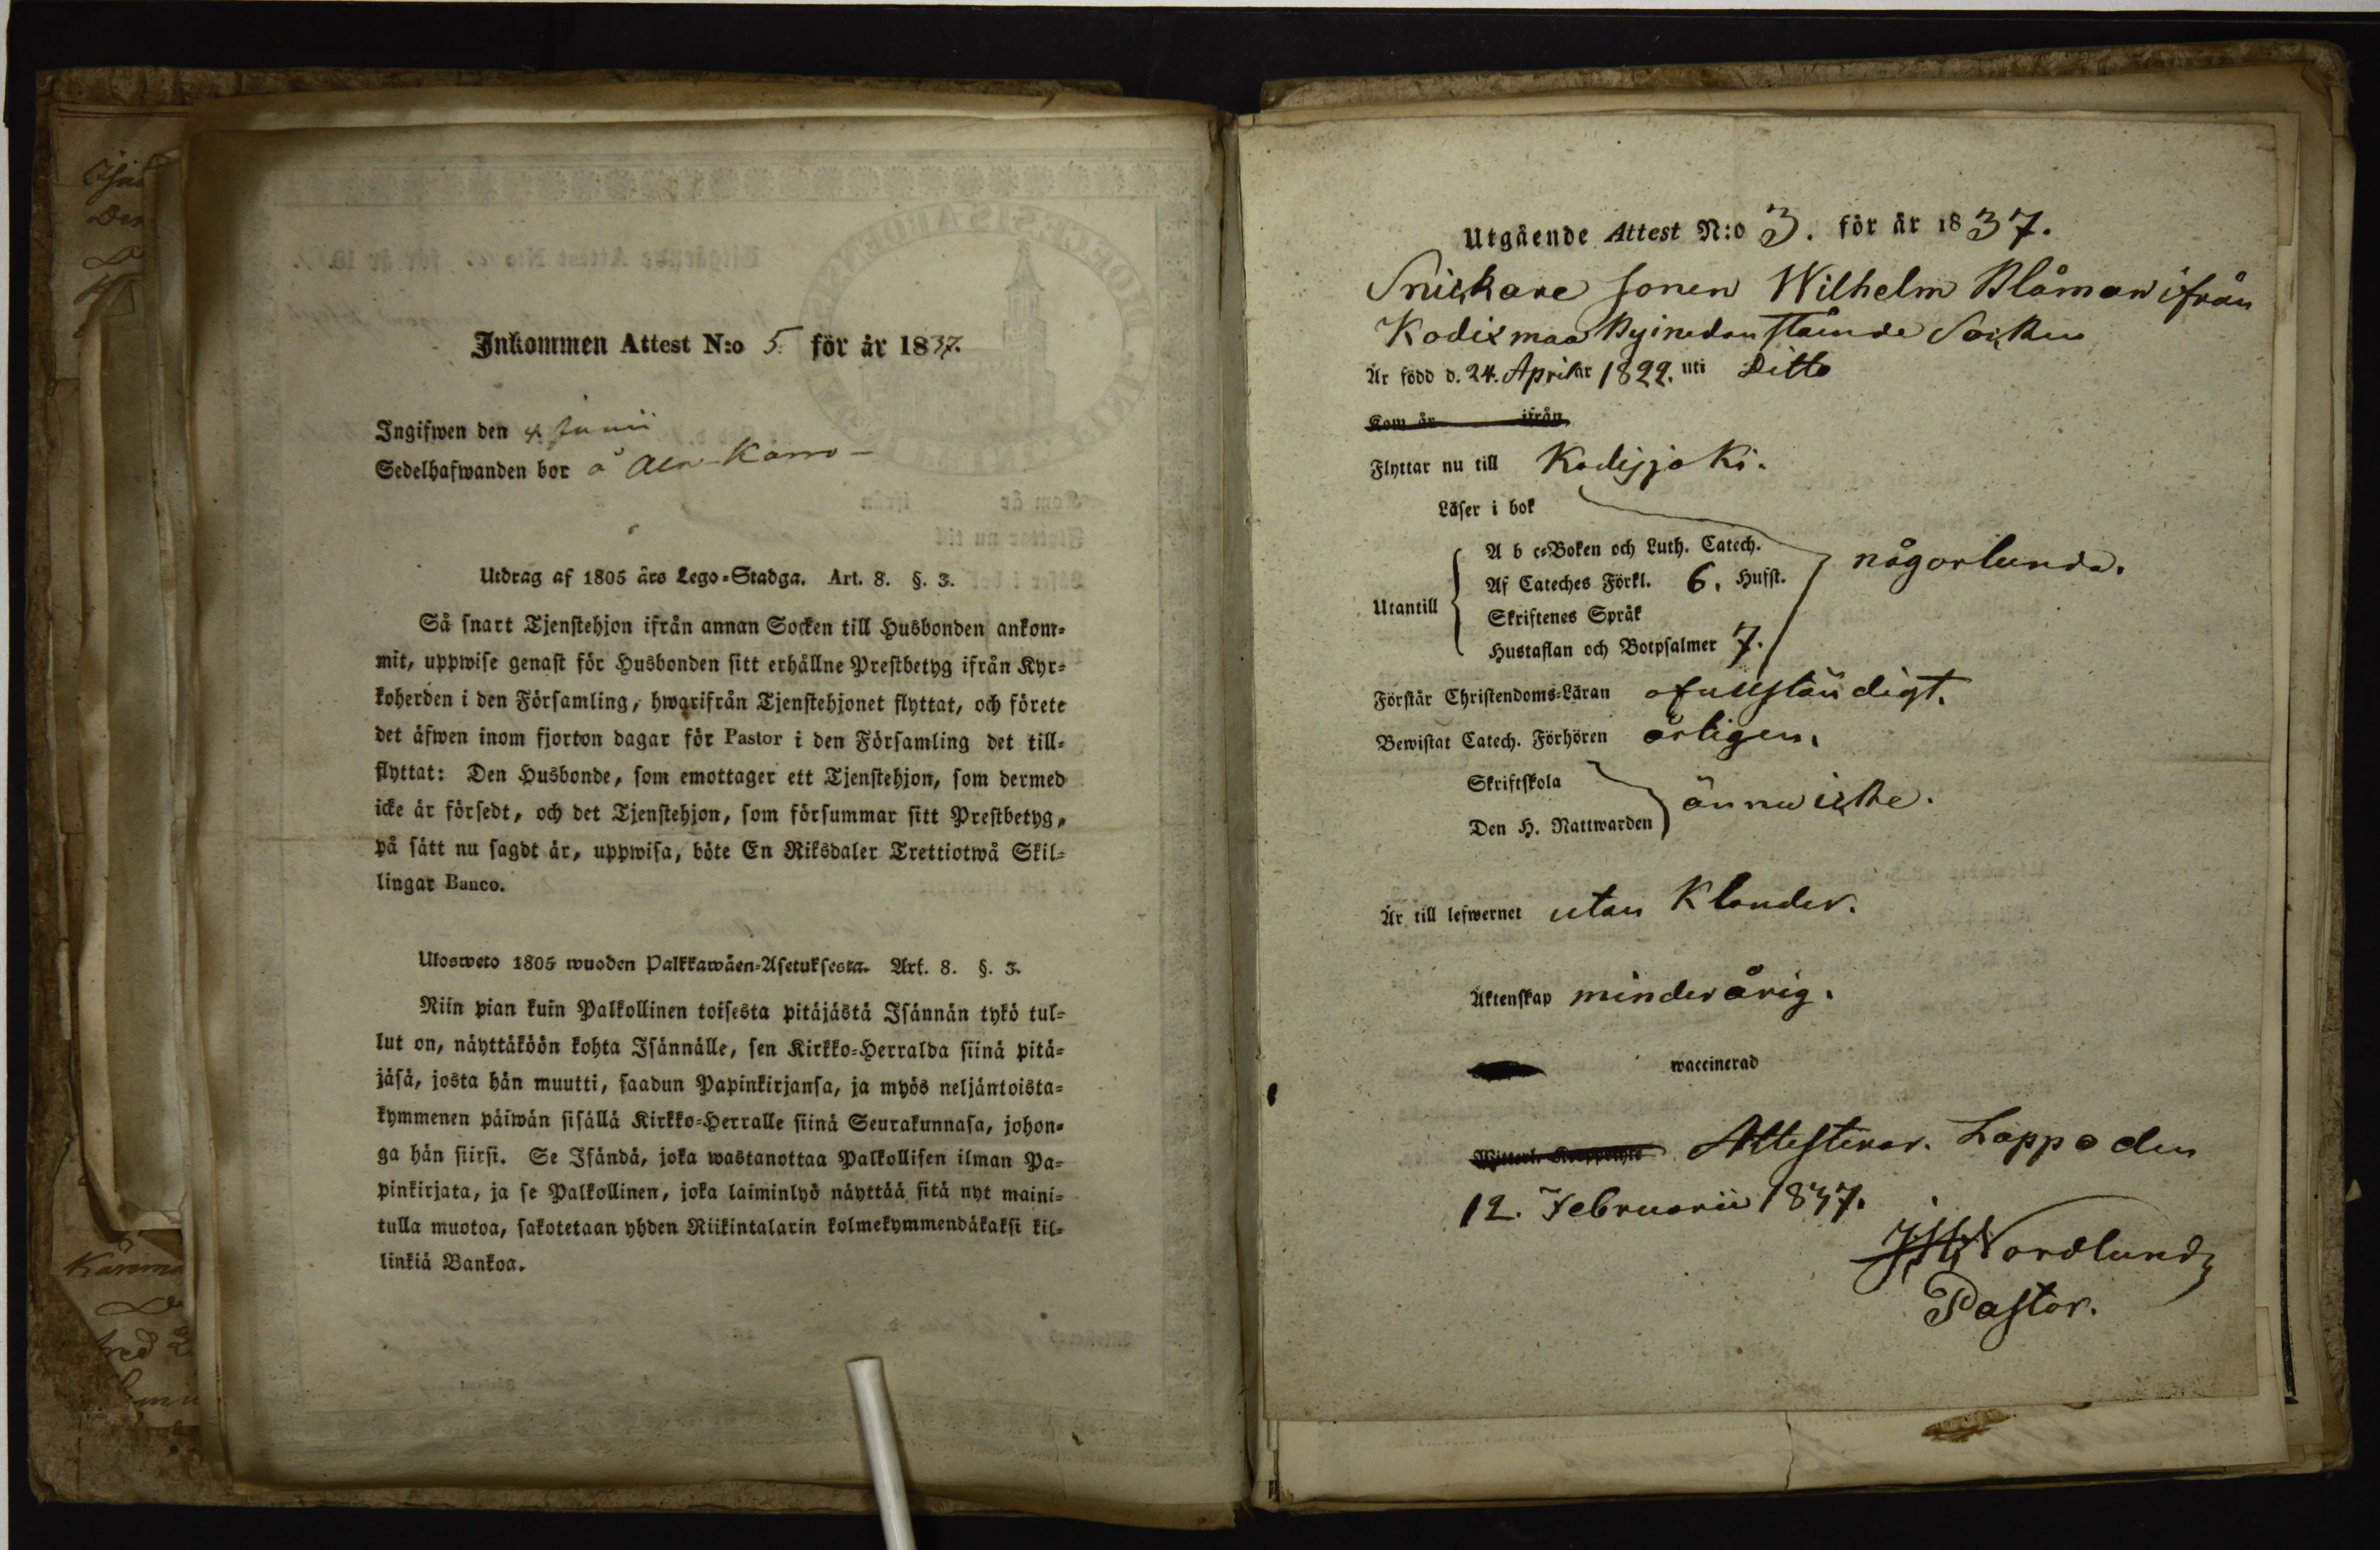 Inkommen Attest N:o 5. för år 1837.
Ingifwen den 4 Junii
Sedelhafwanden bor å
Utdrag af 1805 års Lego-Stadga. Art. 8. §. 3.
Så snart Tjenstehjon ifrån annan Socken till Husbonden ankom-
mit, uppwise genast för Husbonden sitt erhållne Prestbetyg ifrån Kyr-
koherden i den Församling, hwarifrån Tjenstehjonet flyttat, och förete
det äfwen inom fjorton dagar för Pastor i den Församling det till-
flyttat: Den Husbonde, som emottager ett Tjenstehjon, som dermed
icke är försedt, och det Tjenstehjon, som försummar sitt Prestbetyg,
på sätt nu sagdt är, uppwisa, böte En Riksdaler Trettiotwå Skil-
lingar Banco.
Ulosweto 1805 wuoden Palkkawäen-Asetuksesta. Art. 8. §. 3.
Niin pian kuin Palkollinen toisesta pitäjästä Isännän tykö tul-
lut on, näyttäköön kohta Isännälle, sen Kirkko-Herralda siinä pitä-
jäsä, josta hän muutti, saadun Papinkirjansa, ja myös neljäntoista-
kymmenen päiwän sisällä Kirkko-Herralle siinä Seurakunnasa, johon-
ga hän siirsi. Se Isändä, joka wastanottaa Palkollisen ilman Pa-
pinkirjata, ja se Palkollinen, joka laiminlyö näyttää sitä nyt maini-
tulla muotoa, sakotetaan yhden Riikintalarin kolmekymmendäkaksi kil-
linkiä Bankoa.
Utgående Attest N:o 3. för år 1837.
Snickare sonen Wilhelm Blåman ifrån
Kodixmaa By i nedanstående Socken
Är född d. 24. April år 1822. uti Ditto
Kom år ifrån
Flyttar nu till Kodisjoki.
Läser i bok
A b c-Boken och Luth. Catech.
någorlunda.
Af Cateches Förkl. 6. Hufst.
Utantill
Skriftenes Språk
Hustaflan och Botpsalmer 7.
Förstår Christendoms-Läran ofullständigt.
Bewistat Catech. Förhören årligen.
Skriftskola
ännu icke.
Den H. Nattwarden
Är till lefwernet utan Klander.
Äktenskap minderårig.
waccinerad
Attesterar. Lappo den
12. Februarii 1837.
Nordlund
Pastor.